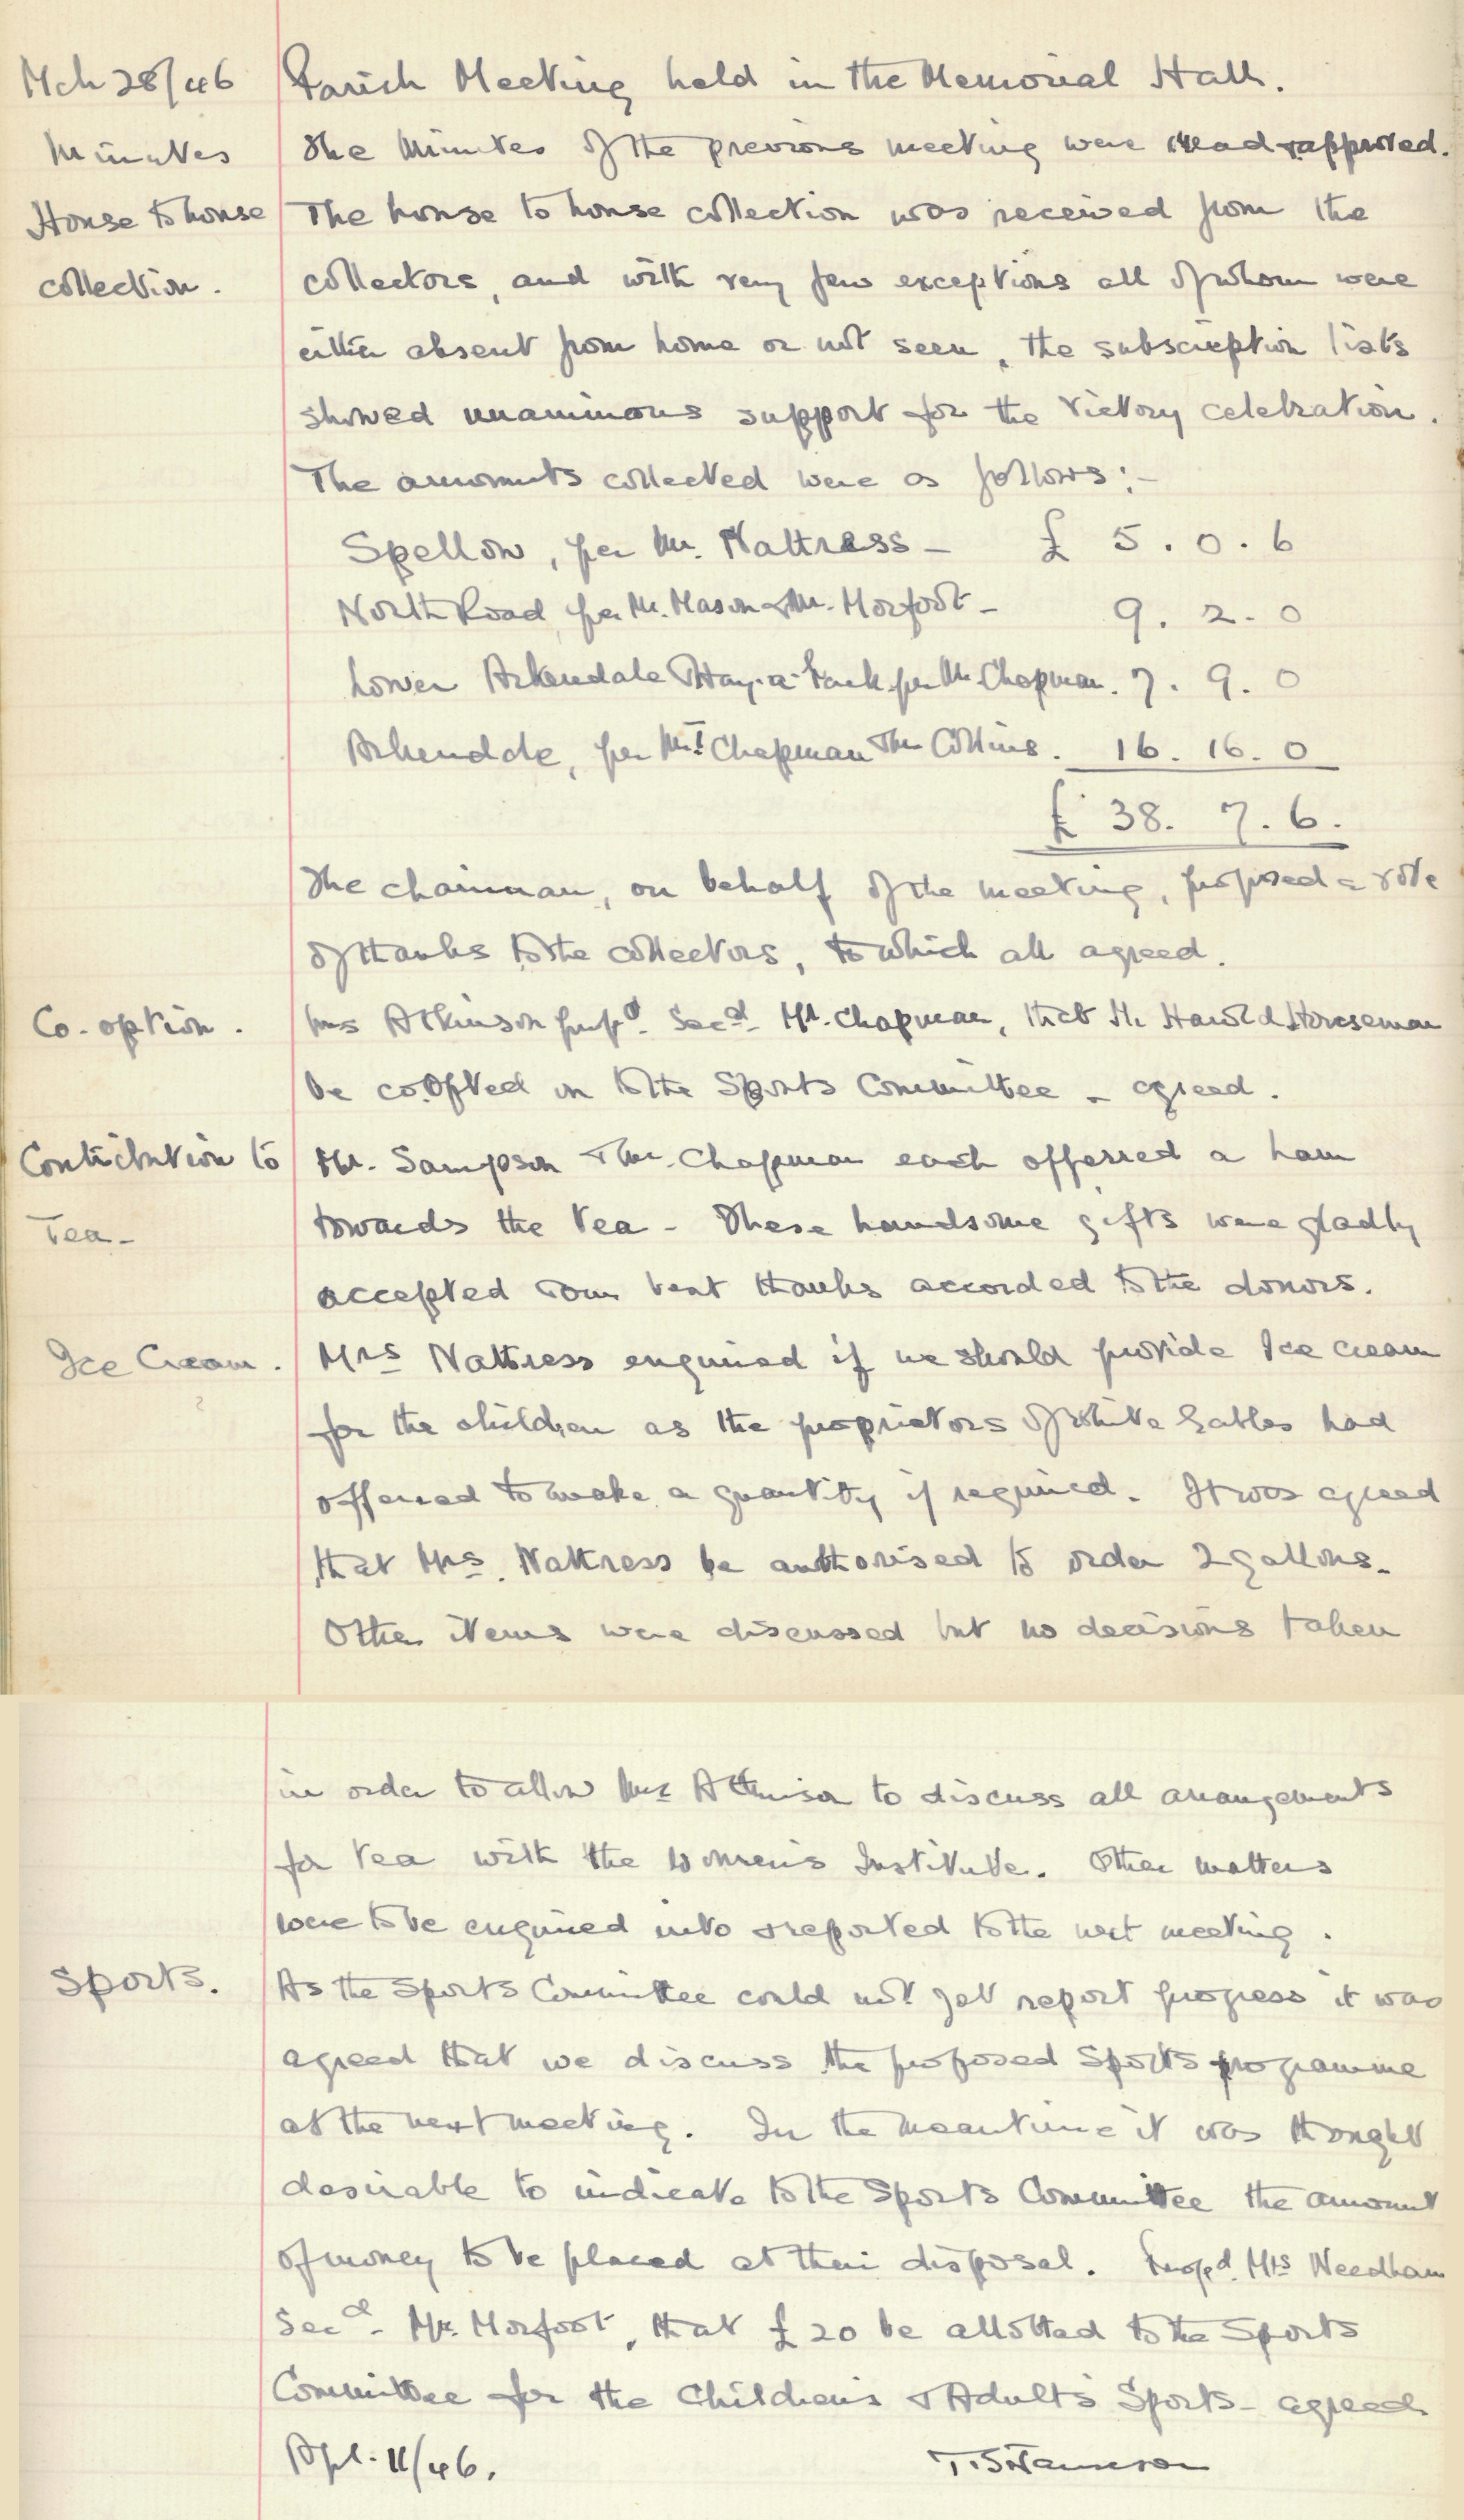 Mch 28/46 Parish Meeting held in the Memorial Hall.
Minutes The Minutes of the previous meeting were read & approved.
House to house The house to house collection was received from the
collection. collectors, and with very few exceptions all of whom were
either absent from home or not seen, the subscription lists
showed unanimous support for the Victory celebration.
The amounts collected were as follows:-
Spellow, per Mr. Nattrass - £ 5. 0. 6
North Road per Mr. Mason & Mr. Morfoot - 9. 2. 0
Lower Arkendale & Hay-a-Park per Mr Chapman. 7. 9. 0
Arkendale, per Mr. Chapman & Mr Collins. 16. 16. 0
£ 38. 7. 6.
The chairman, on behalf of the meeting, proposed a vote
of thanks to the collectors, to which all agreed.
Co-option. Mrs Atkinson propd. Secd. Mr. Chapman, that Mr Harold Horseman
be coopted on to the Sports Committee - agreed.
Contribution to Mr. Sampson & Mr. Chapman each offerred a ham
Tea - towards the tea - These handsome gifts were gladly
accepted & our best thanks accorded to the donors.
Ice Cream. Mrs Nattress enquired if we should provide Ice cream
for the children as the proprietors of White Gables had
offerred to make a quantity if required. It was agreed
that Mrs. Nattress be authorised to order 2 gallons.
Other items were discussed but no decisions taken
in order to allow Mrs Atkinson to discuss all arrangements
for tea with the Women's Institute. Other matters
were to be enquired into & reported to the next meeting.
Sports. As the Sports Committee could not yet report progress it was
agreed that we discuss the proposed Sports programme
at the next meeting. In the meantime it was thought
desirable to indicate to the Sports Committee the amount
of money to be placed at their disposal. Propd. Mrs Needham
Secd. Mr. Morfoot, that £20 be allotted to the Sports
Committee for the Childrens & Adults Sports - agreed
Apl. 11/46.